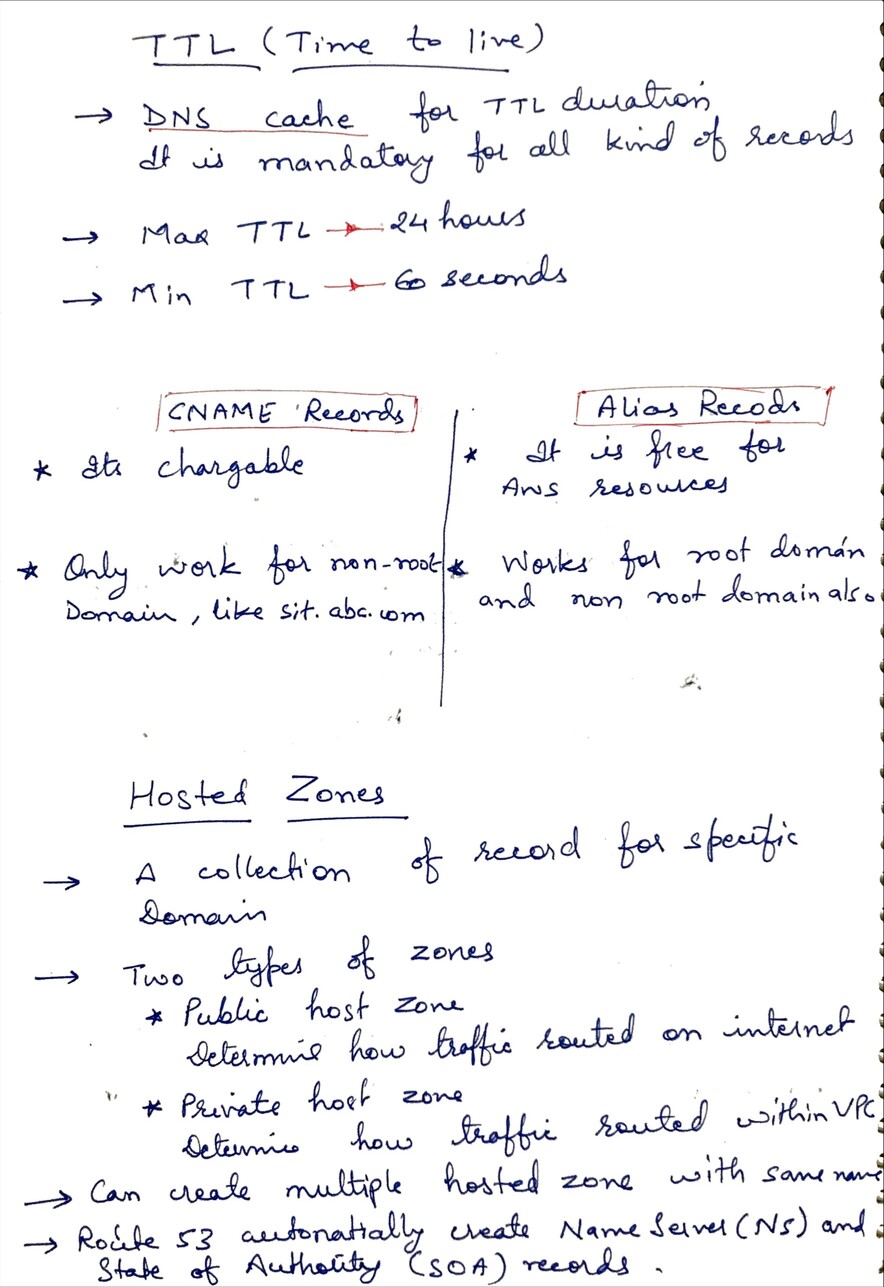 TTL (Time to live)
→ DNS cache for TTL duration
It is mandatory for all kind of records
→ Max TTL → 24 hours
→ Min TTL → 60 seconds
CNAME Records
* Its chargable
* Only work for non-root
Domain, like sit.abc.com
Alias Recods
* It is free for
AWS resources
* Works for root domain
and non root domain also
Hosted Zones
→ A collection of record for specific
Domain
→ Two types of zones
* Public host zone
Determine how traffic routed on internet
* Private host zone
Determine how traffic routed within VPC
→ Can create multiple hosted zone with same name
→ Route 53 automatially create Name Server (NS) and
State of Authority (SOA) records.